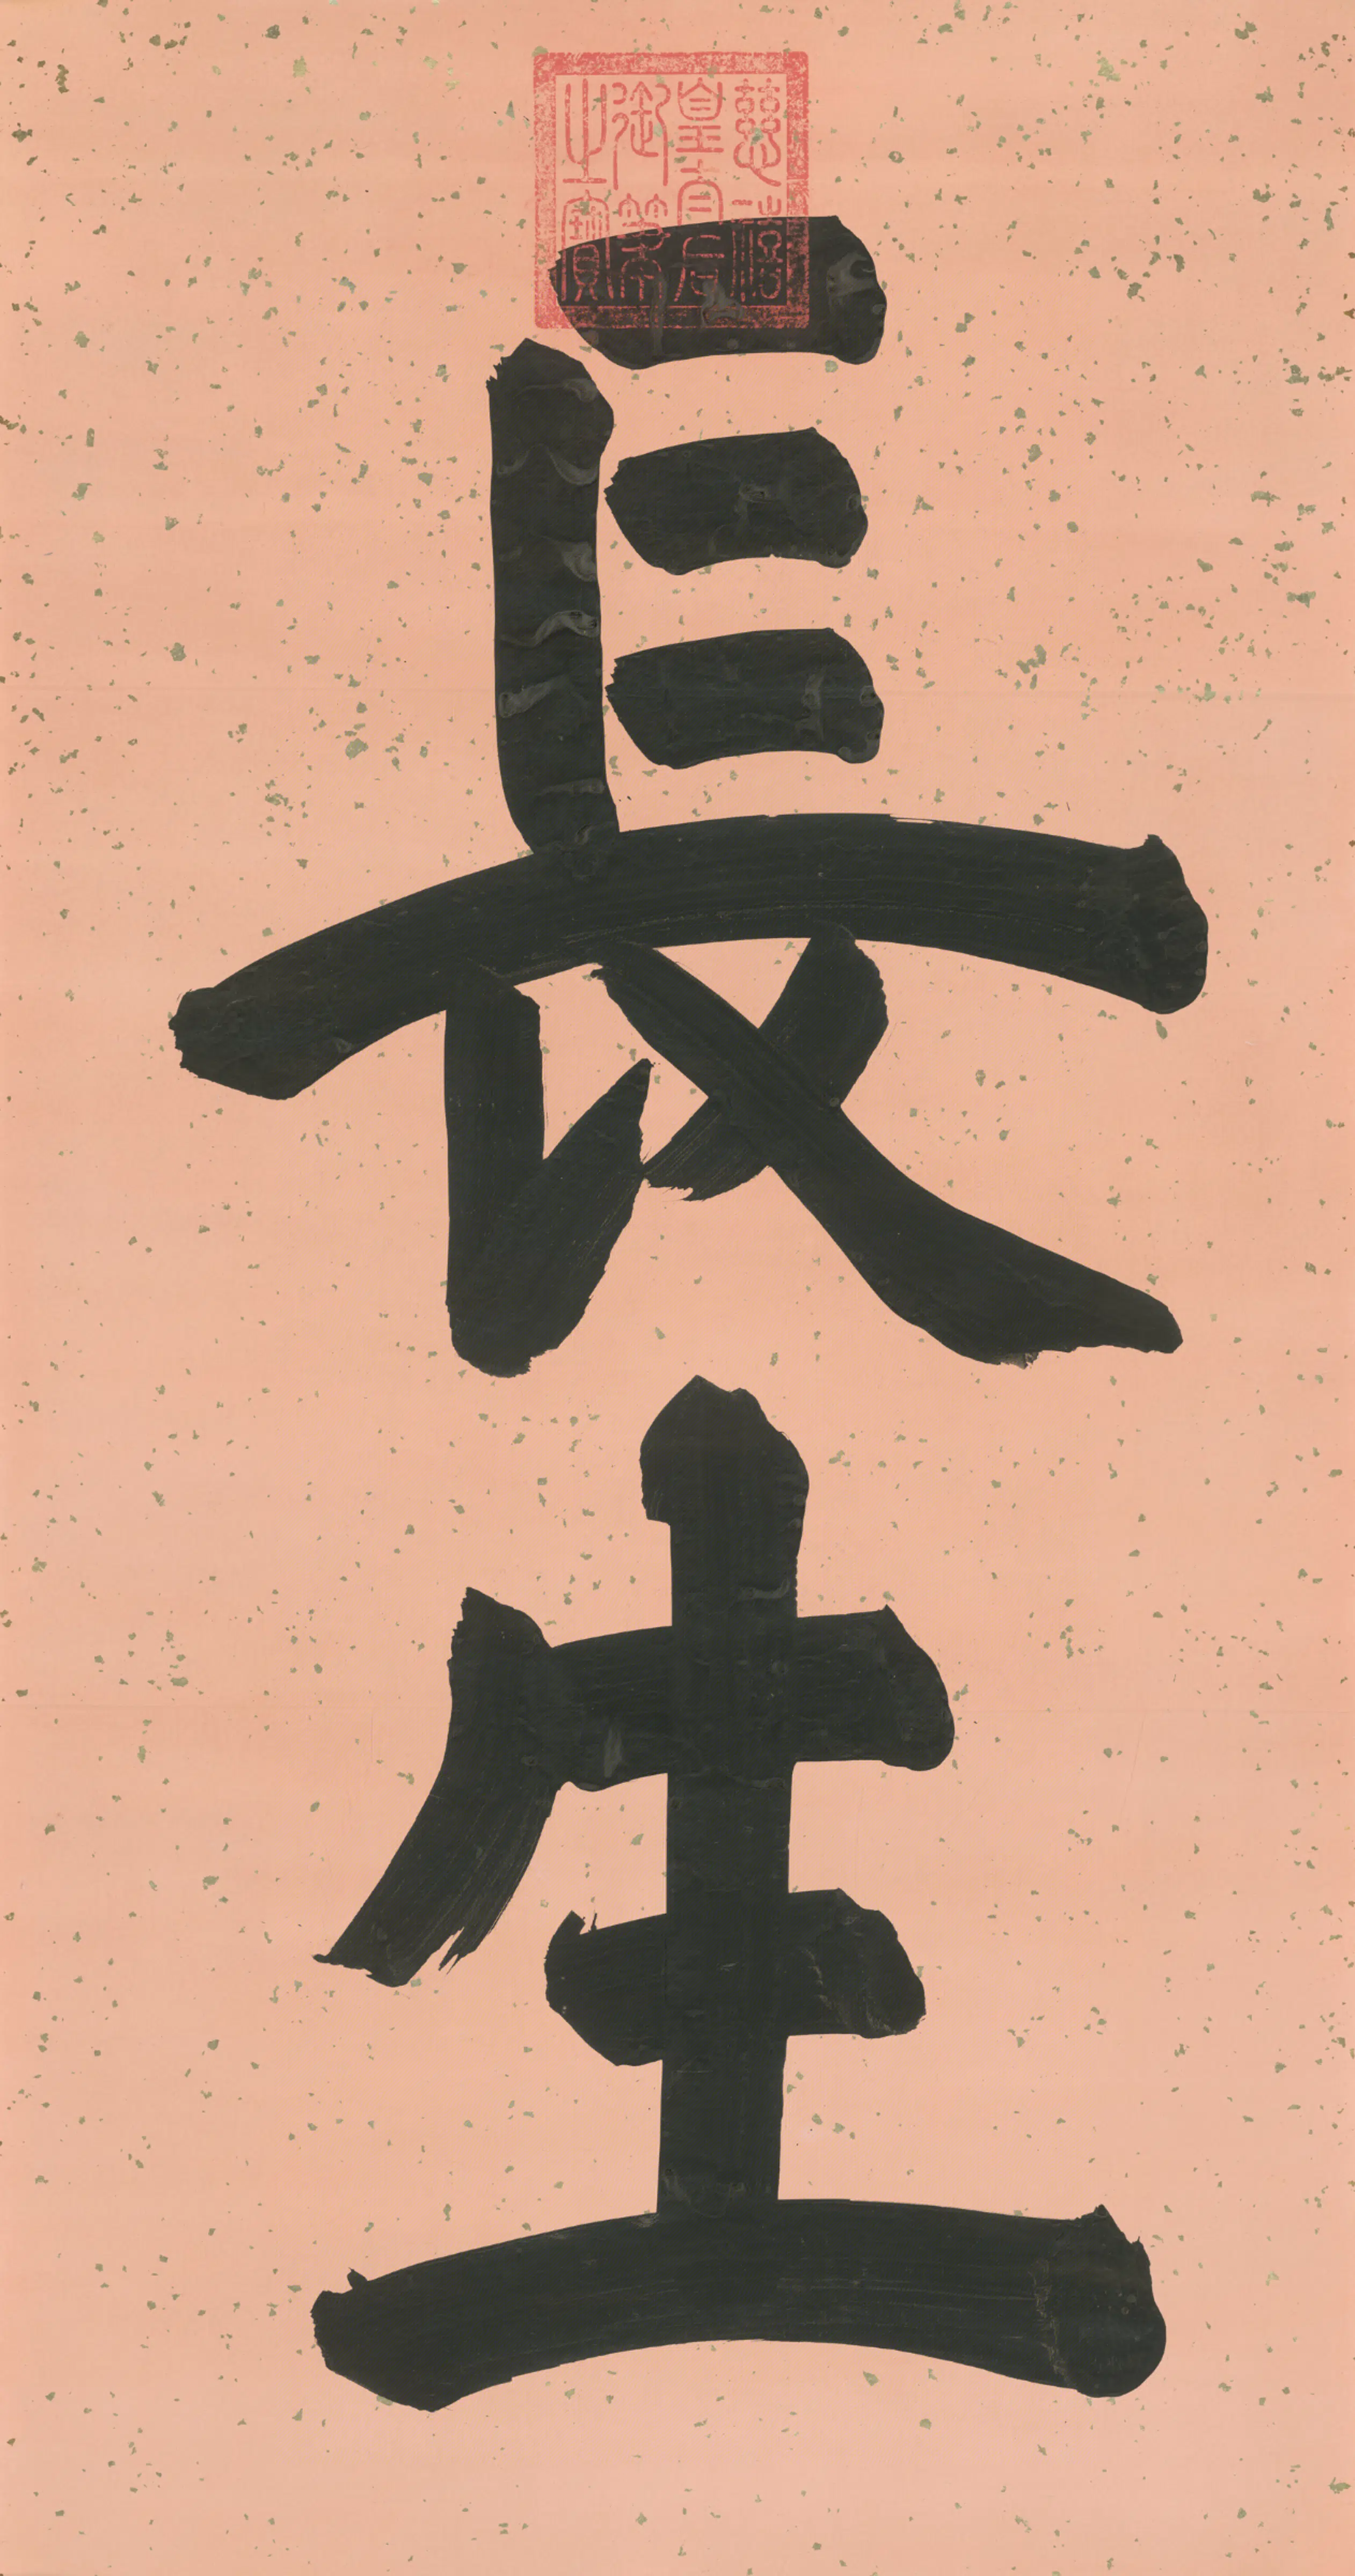 長生
慈禧
皇太后
御筆
之寶